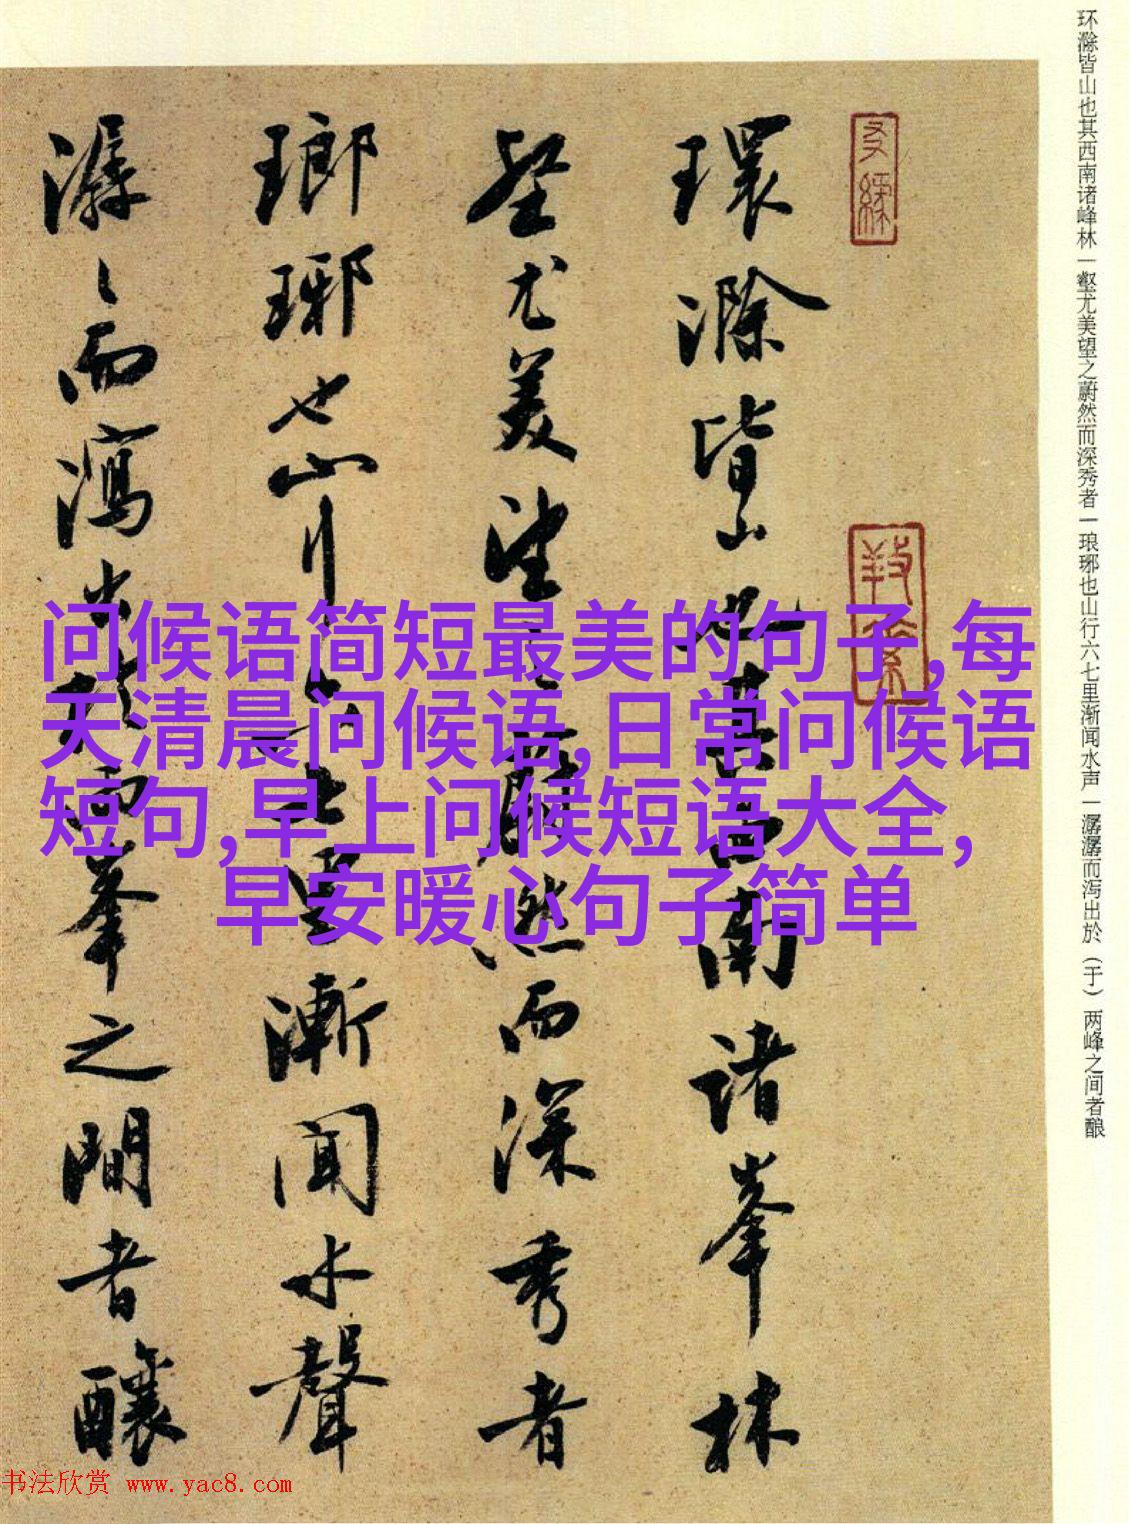 环滁皆山也其西南诸峰林一壑尤美望之蔚然而深秀者一琅琊也山行六七里渐闻水声一潺潺而泻出於（于）两峰之间者酿
環滁皆山也其西南諸峯林
壑尤美望之蔚然而深秀者
瑯琊也山行六七里漸聞水聲
潺々而瀉出於兩峯之間者釀
问候语简短最美的句子,每
天清晨问候语,日常问候语
短句,早上问候短语大全,
早安暖心句子简单
书法欣赏 www.yac8.com